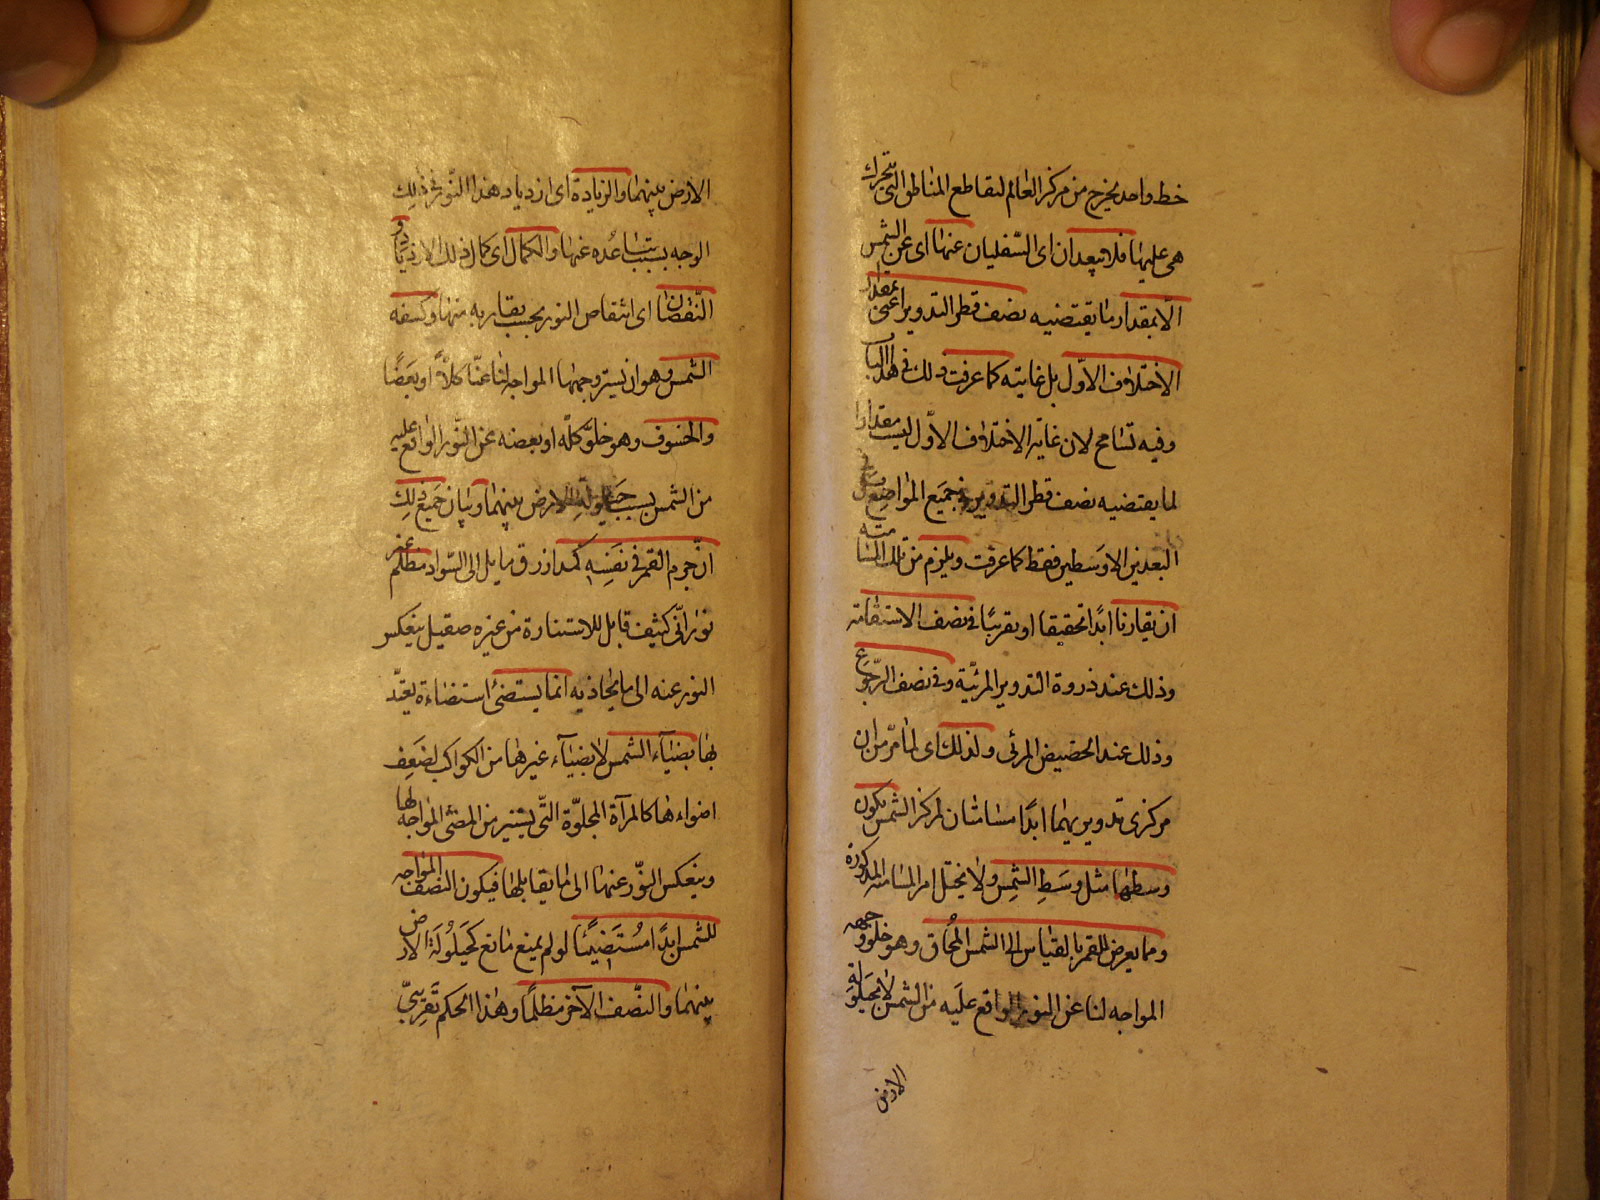 خط واحد يخرج من مركز العالم لتقاطع المناطق التى يتحرك
هى عليها فلا يبعدان اى السفليان عنها اى عن الشمس
الّا بمقدار ما يقتضيه نصف قطر التدوير اعنى بمقدار
الاختلاف الاوّل بل غايته كما عرفت ذلك فى هذا الباب
وفيه تسامح لان غاية الاختلاف الاوّل ليست مقدارا
لما يقتضيه نصف قطر التدوير فى جميع المواضع بل فى
البعدين الاوسطين فقط كما عرفت ويلزم من تلك المسامته
ان يقارنا ابدًا تحقيقا او تقريبًا فى نصف الاستقامة
وذلك عند ذروة التدوير المرئيّة وفى نصف الرّجوع
وذلك عند الحضيض المرئى ولذلك اى لما مرّ من ان
مركزى تدويريهما ابدًا مسامتان لمركز الشمس يكون
وسطها مثل وسَطِ الشمس ولا يختل امر المسامته المذكورة
ومما يعرض للقمر بالقياس الى الشمس المُحاق وهو خلوّ وجهه
المواجه لنا عن النور الواقع عليَه من الشمس لا بحيلولة
الارض
الارض بينهما والزيادة اى ازدياد هذا النّور فى ذلك
الوجه بسبب تباعُده عنها والكمال اى كمال ذلك الازدياد و
النّقصان اى انتقاص النور بحسب تقاربه منها وكسفه
الشمس وهو ان يستر وجهها المواجه لنا عنّا كلاًّ او بعضًا
والخسوف وهو خلوّ كلّه او بعضه عن النّور الواقع عليه
من الشمس بسبب حَيلولَةِ الارض بينهما وبيان جميع ذلك
انّ جرم القمر فى نفسِه كمد ازرق مايل الى السّواد مظلم غير
نورانىّ كثيف قابل للاستنارة من غيره صقيل ينعكس
النور عنه الى ما يحاذيه انما يستضئ استضاءة يعتدّ
بها بضيآء الشمس لا بضيآء غيرها من الكواكب لضعف
اضواءها كالمرآة المجلوّة التّى يستنير من المضئ المواجه لها
وينعكس النّور عنها الى ما يقابلها فيكون النصف المواجه
للشمس ابدًا مُستَضيئًا لو لم يمنع مانع كحَيلُولَة الارض
بينهما والنّصف الآخر مظلمًا وهذا الحكم تَقريبىّ